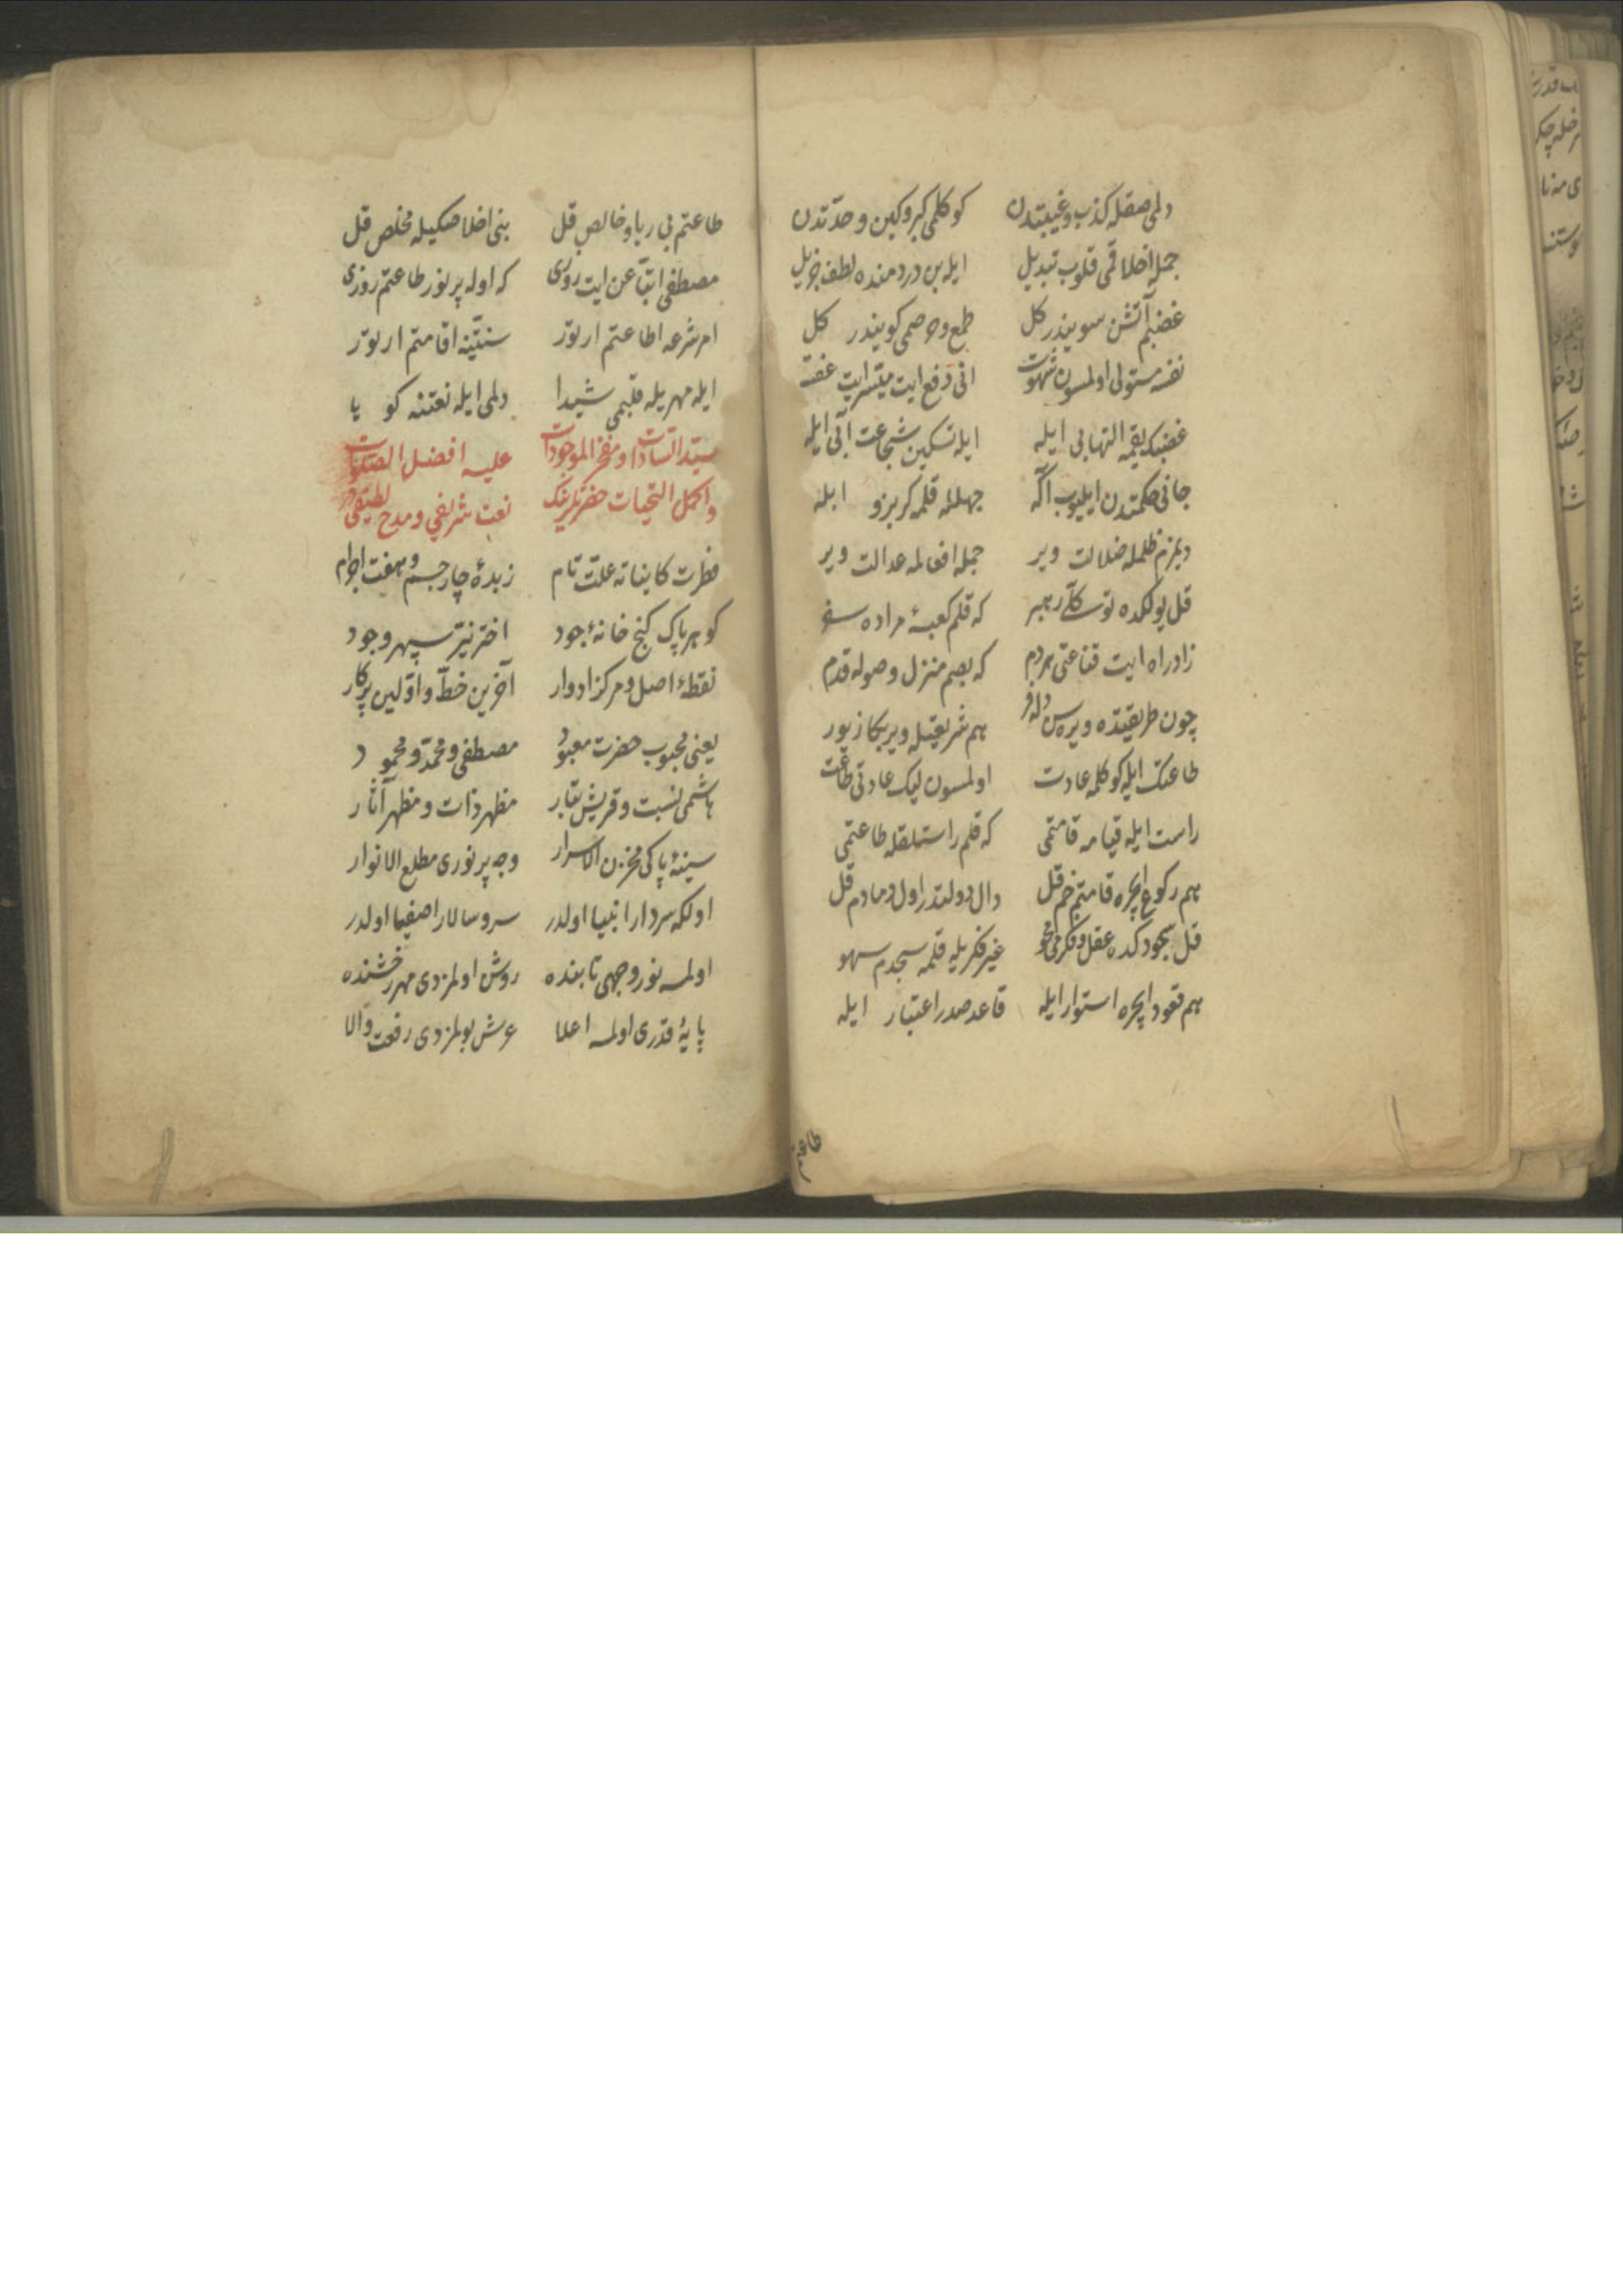 دلمی صقله کذب و غیبتدن كوكلمی کبر و کین و حدّتدن
جمله اخلاقمی قلوب تبدیل ایله بن دردمنده لطف جزیل
غضبم آتشن سویندر کل طمع و حرصمی کویندر کل
نفسه مستولی اولمسون شهوت انی دفع ایت میسّر ایت عفت
غضبک یقمه التهابی ایله ایله تسکین شجاعت آبی ایله
جانی حکمتدن ایلیوب آکه جهلله قلمه کربزو ابله
ویرمزم ظلمله ضلالت ویر جمله افعالمه عدالت ویر
قل یولکده توکلّی رهبر که قلم کعبهٔ مراده سفر
زاد راه ایت قناعتی هردم که بصم منزل وصوله قدم
چون طریقتده ویره سن هم شریعتله ویر بکا زیور
طاعتک ایله کوکلمه عادت اولمسون لیک عادتی طاعت
راست ایله قیامه قامتمی که قلم راستلقله طاعتمی
هم رکوع ایچره قامتم خم قل دال دولتدر اول دمادم قل
قل سجودکده عقل و فکرمی محو غیر فکریله قلمه سجدم سهو
هم قعود ایچره استوار ایله قاعد صدر اعتبار ایله
طاعتم
طاعتم بی ریا و خالص قل بنی اخلاصکیله مخلص قل
مصطفی اتباعن ایت روزی که اوله پر نور طاعتم روزی
امر شرعه اطاعتم ارتور سنتّینه اقامتم ارتور
ایله مهریله قلبمی شیدا دلمی ایله نعتنه کویا
سیّد السّادات و مفخر الموجودات علیه افضل الصّلوات
و اکمل التحیات حضرتلرینک نعت شریفی و مدح لطیفی
فطرت کایناته علّت تام زبدهٔ چار جسم و هفت اجرام
کوهر پاک کنج خانهٔ جود اختر نیّر سپهر وجود
نقطهٔ اصل و مرکز ادوار آخرین خطّ و اوّلین پرکار
یعنی محبوب حضرت معبود مصطفی و محمّد و محمود
هاشمی نسبت و قریش تبار مظهر ذات و مظهر آثار
سینهٔ پاکی مخزن الاسرار وجه پر نوری مطلع الانوار
اولکه سردار انبیا اولدر سرو سالار اصفیا اولدر
اولمسه نور وجهی تابنده روشن اولمزدی مهر رخشنده
پایهٔ قدری اولمسه اعلا عرش بولمزدی رفعت والا